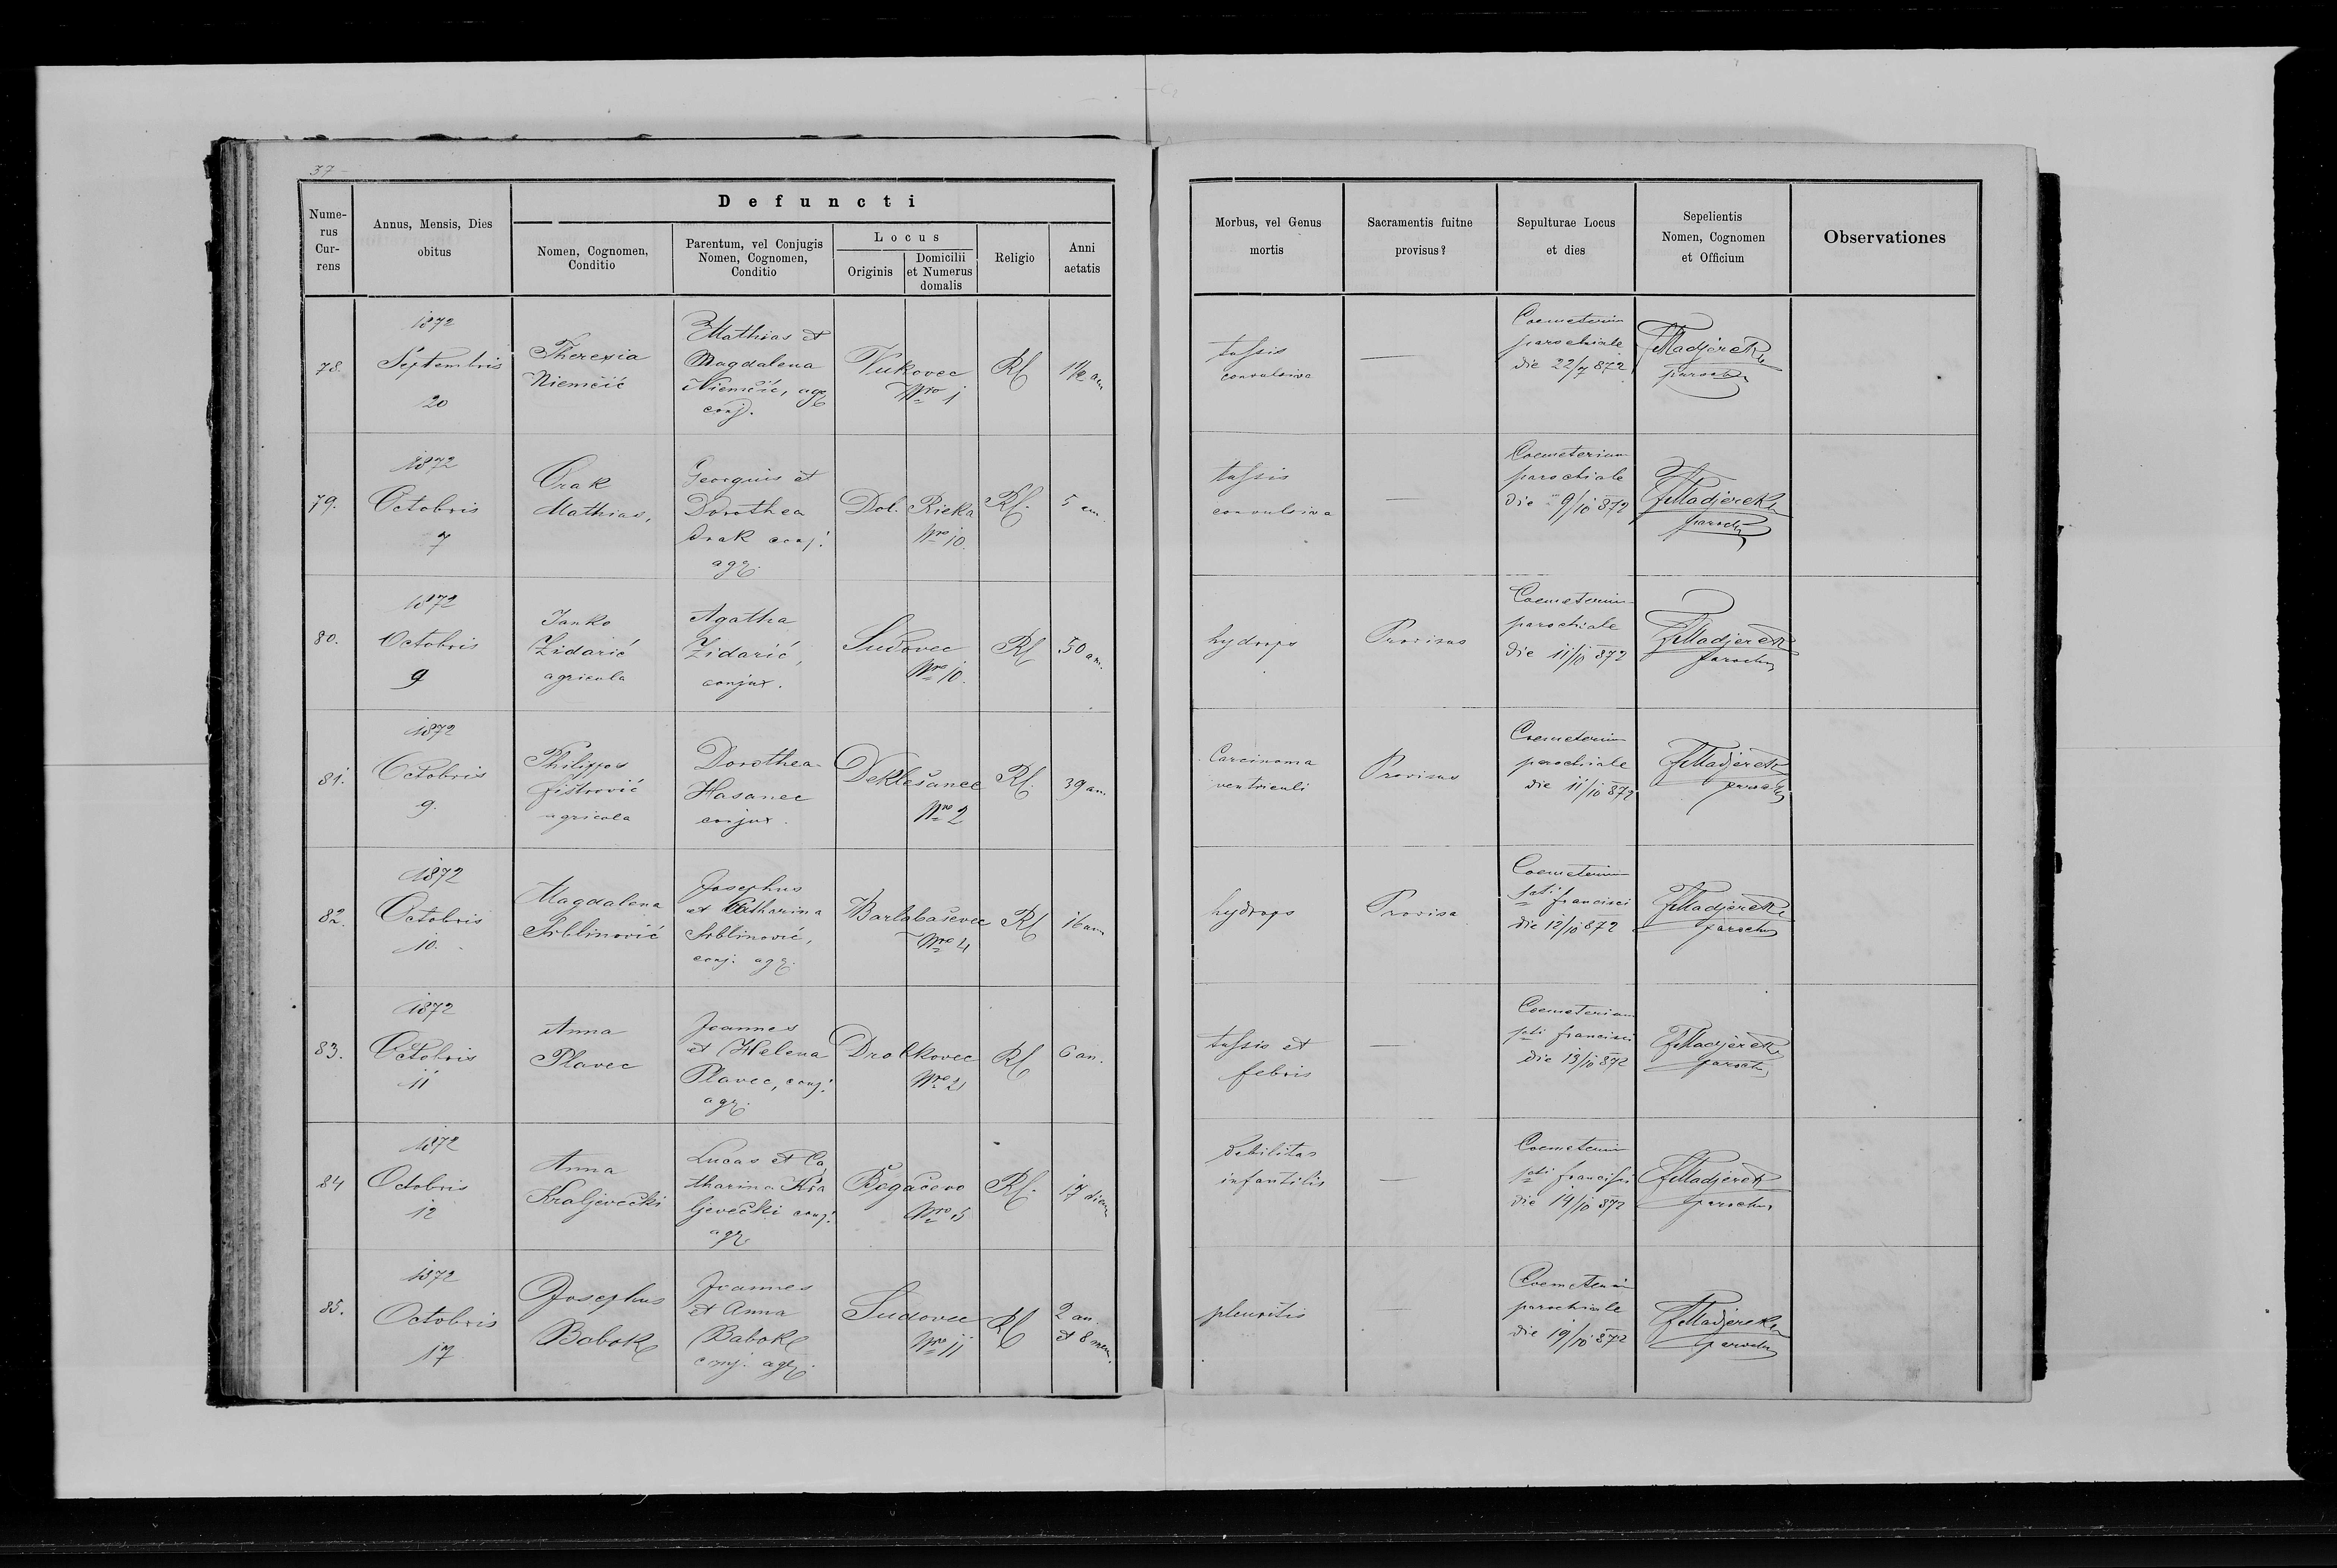 37
Defuncti
Nume-
rus
Cur-
rens
Annus, Mensis, Dies
obitus
Nomen, Cognomen,
Conditio
Parentum, vel Conjugis
Nomen, Cognomen,
Conditio
Locus
Originis
Domicilii
et Numerus
domalis
Religio
Anni
aetatis
Morbus, vel Genus
mortis
Sacramentis fuitne
provisus?
Sepulturae Locus
et dies
Sepelientis
Nomen, Cognomen
et Officium
Observationes
78.
1872
Septembris
20
Theresia
Niemčić
Mathias et
Magdalena
Niemčić, agr
conj.
Vukovec
Nro 1
RC
1½ an
tussis
convulsiva
—
Coemeterium
parochiale
die 22/9 872
FMadjerek
parochus
79.
1872
Octobris
7
Orak
Mathias,
Georgius et
Dorothea
Orak conj.
agr.
Dol. Rieka
Nro 10.
RC.
5 an.
tussis
convulsiva
—
Coemeterium
parochiale
die 9/10 872
FMadjerek
parochus
80.
1872
Octobris
9
Janko
Židarić
agricola
Agatha
Židarić,
conjux.
Sudovec
Nro 10.
RC
50 an.
hydrops
Provisus
Coemeterium
parochiale
die 11/10 872
FMadjerek
parochus
81.
1872
Octobris
9.
Philippus
Fištrović
agricola
Dorothea
Hasanec
conjux.
Deklešanec
Nro 2
RC.
39 an.
Carcinoma
ventriculi
Provisus
Coemeterium
parochiale
die 11/10 872
FMadjerek
parochus
82.
1872
Octobris
10.
Magdalena
Srblinović
Josephus
et Catharina
Srblinović,
conj. agr.
Barlabaševec
Nro 4
RC
16 an
hydrops
Provisa
Coemeterium
scti francisci
die 12/10 872
FMadjerek
parochus
83.
1872
Octobris
11
Anna
Plavec
Joannes
et Helena
Plavec, conj.
agr.
Drobkovec
Nro 2
RC
6 an.
tussis et
febris
—
Coemeterium
scti francisci
die 13/10 872
FMadjerek
parochus
84
1872
Octobris
12
Anna
Kraljevečki
Lucas et Ca
tharina Kra
ljevečki conj.
agr.
Begačevo
Nro 5
RC.
17 dierum
debilitas
infantilis
—
Coemeterium
scti francisci
die 14/10 872
FMadjerek
parochus
85.
1872
Octobris
17
Josephus
Babok
Joannes
et Anna
Babok
conj. agr.
Sudovec
Nro 11
RC
2 an.
et 8 men.
pleuritis
—
Coemeterium
parochiale
die 19/10 872
FMadjerek
parochus